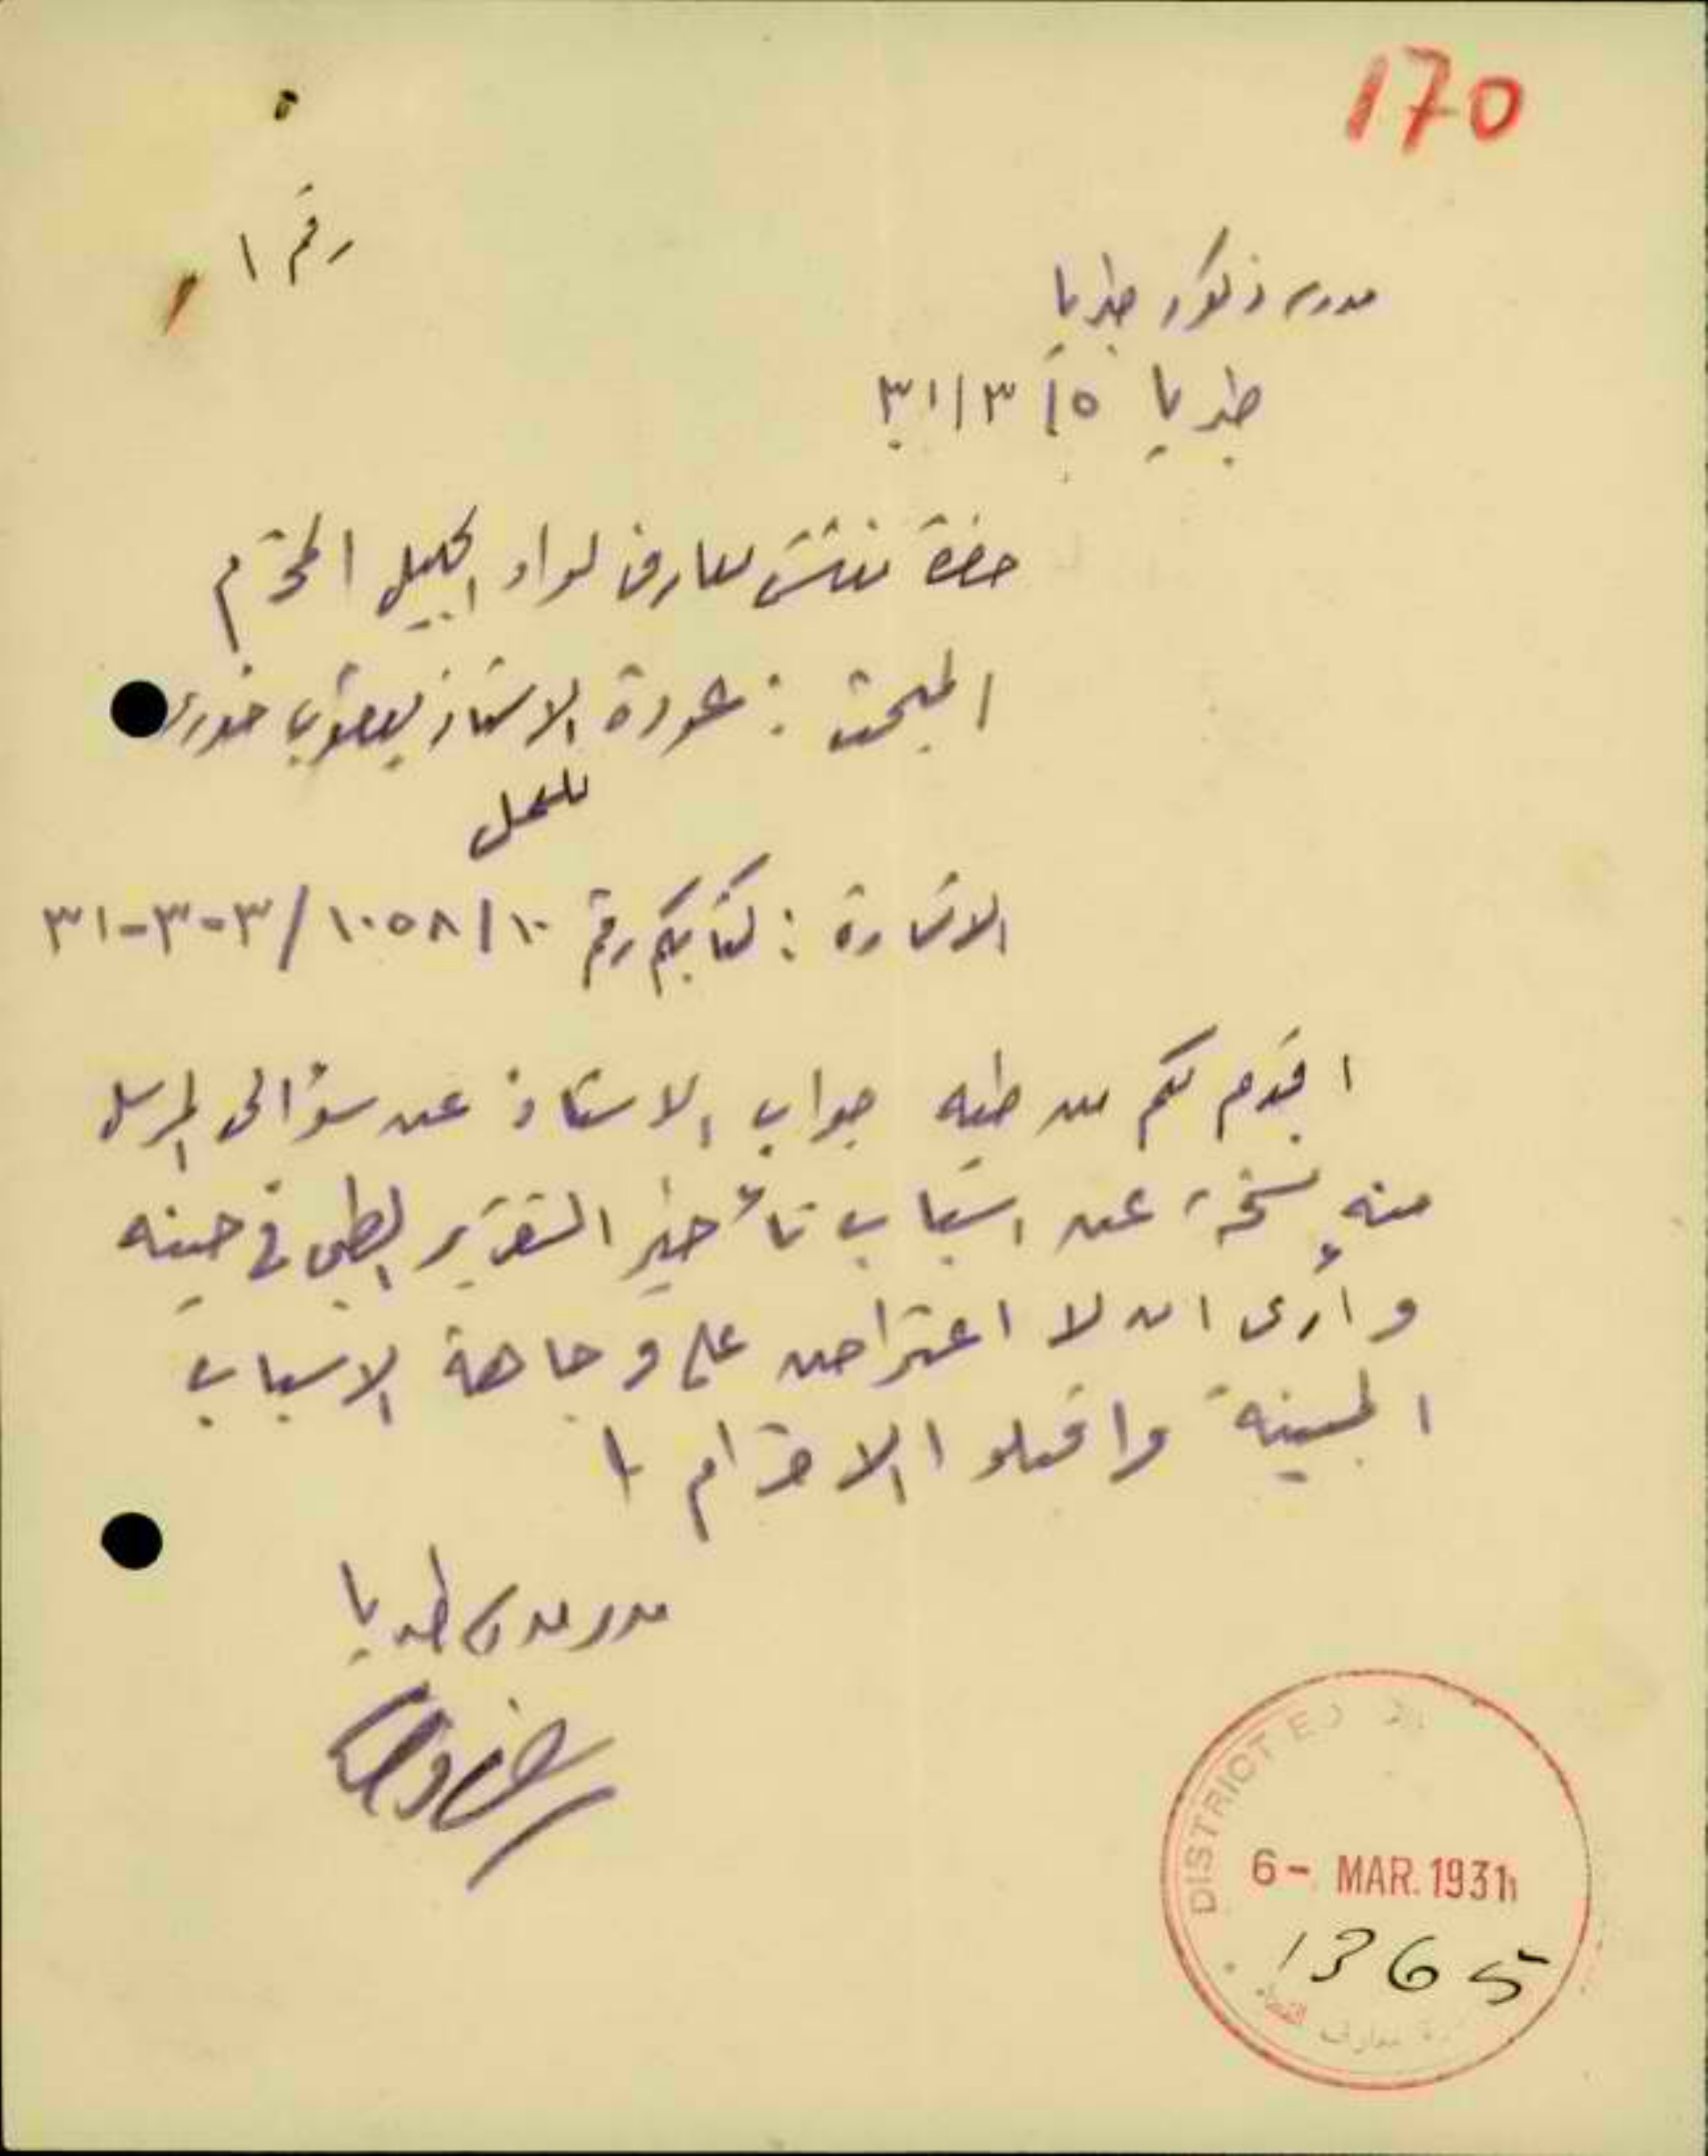 170
رقم ١
مدرسة ذكور طبريا
طبريا ٥/٣/٣١
حضرة مفتش معارف لواء الجليل المحترم
المبحث : عودة الاستاذ يعقوب خوري
للعمل
الاشارة : كتابكم رقم ١٠/١٠٥٨/٣-٣-٣١
اقدم لكم من طيه جواب الاستاذ عن سؤالي المرسل
منه نسخة عن اسباب تأخير التقرير الطبي في حينه
وأرى ان لا اعتراض على وجاهة الاسباب
المبينة واقبلوا الاحترام
مدير مدرسة طبريا
DISTRICT ED
6 - MAR. 1931
1365
معارف